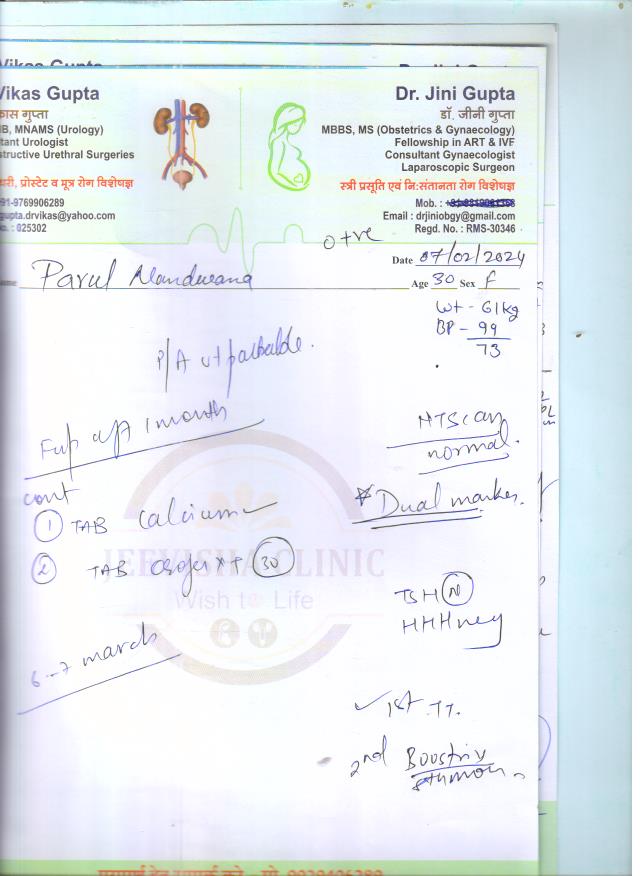 Vikas Gupta
Vikas Gupta
कास गुप्ता
B, MNAMS (Urology)
tant Urologist
structive Urethral Surgeries
थरी, प्रोस्टेट व मूत्र रोग विशेषज्ञ
91-9769906289
gupta.drvikas@yahoo.com
o. : 025302
Dr. Jini Gupta
डॉ. जीनी गुप्ता
MBBS, MS (Obstetrics & Gynaecology)
Fellowship in ART & IVF
Consultant Gynaecologist
Laparoscopic Surgeon
स्त्री प्रसूति एवं नि:संतानता रोग विशेषज्ञ
Mob. :
Email : drjiniobgy@gmail.com
Regd. No. : RMS-30346
O+ve
Date 07/02/2024
Name Parul
Age 30 Sex F
Wt - 61kg
BP - 99
73
P/A ut palpable.
Fup aft 1 month
NT Scan
normal.
cont
* Dual marker.
1 TAB Calcium
2 TAB XT 30
JEEVISHA CLINIC
Wish to Life
TSH N
HHH neg
6-7 march
✓ 1st TT.
2nd Boostrix
8th mon